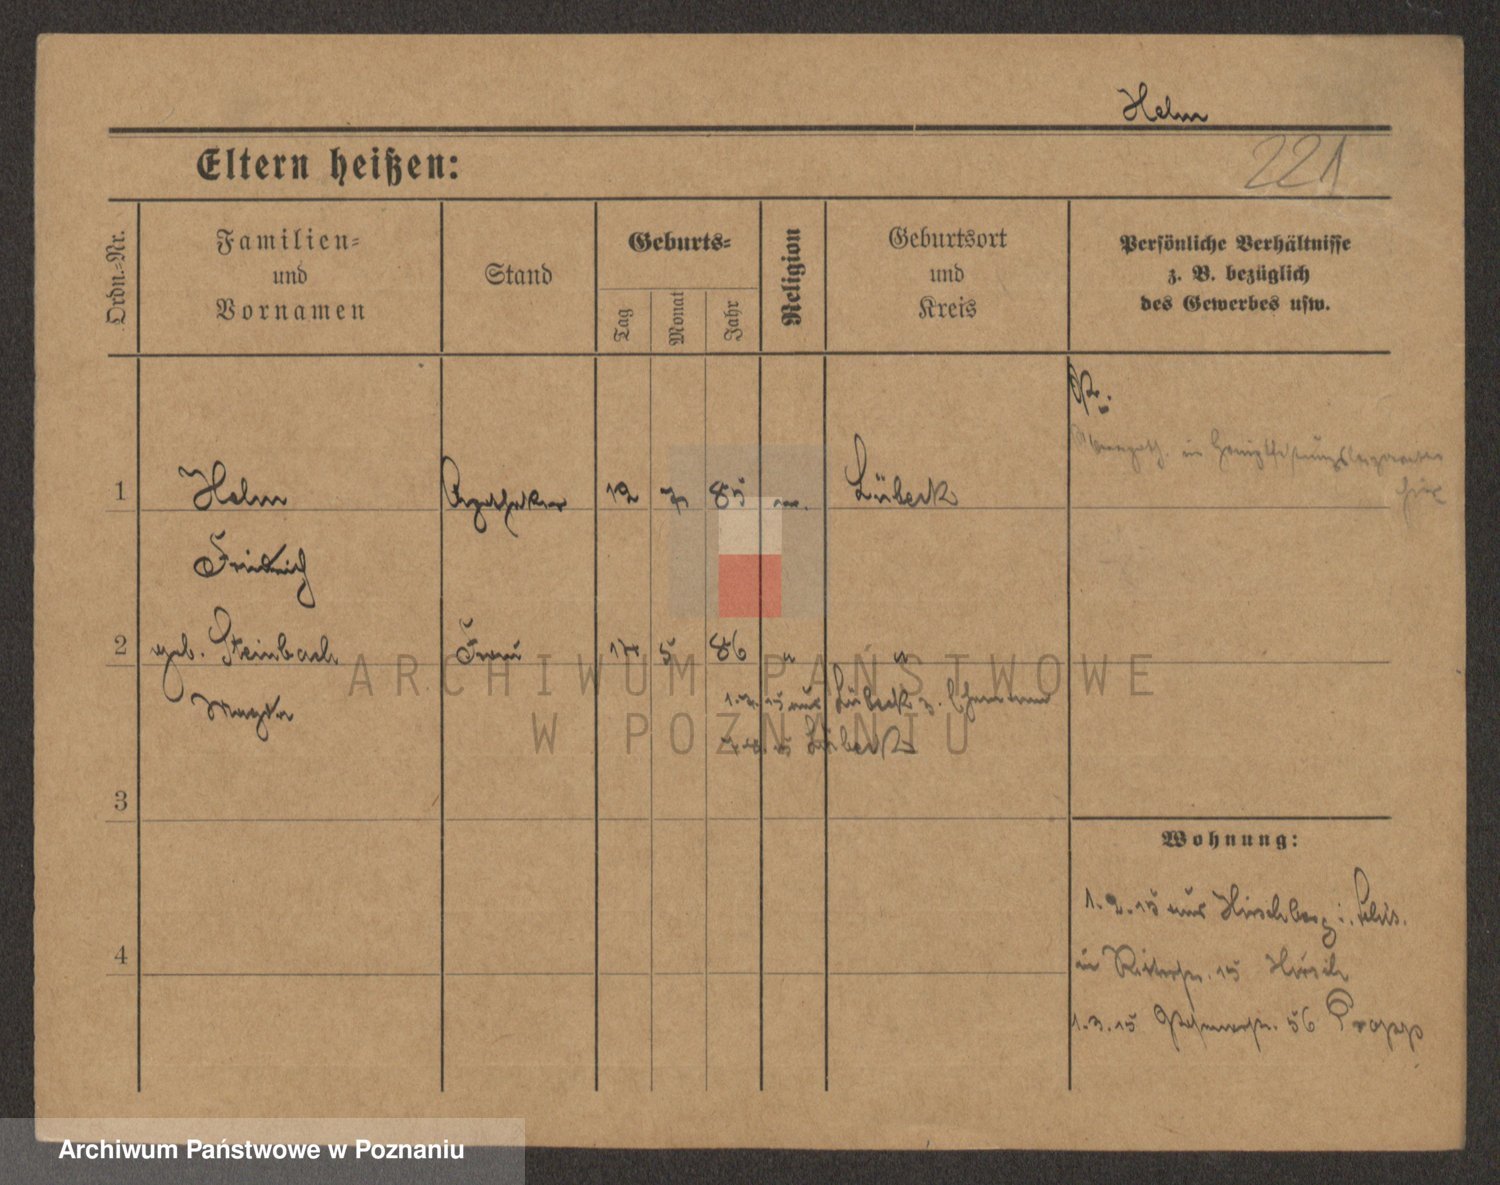 Helm
Eltern heißen:
221
Ordn.-Nr.
Familien-
und
Vornamen
Stand
Geburts-
Tag
Monat
Jahr
Religion
Geburtsort
und
Kreis
Persönliche Verhältnisse
z. B. bezüglich
des Gewerbes usw.
1 Helm Apotheker 12 7 85 Lübeck
Friedrich
2 geb. Steinbach Frau 17 5 86 " "
Magda
aus Lübeck z. Ehemann
Lübeck
3
4
Wohnung:
1.2.15 aus Hirschberg i. Schles.
in Ritterstr. 15 Hirsch
1.3.15 56 Propp
ARCHIWUM PAŃSTWOWE
W POZNANIU
Archiwum Państwowe w Poznaniu